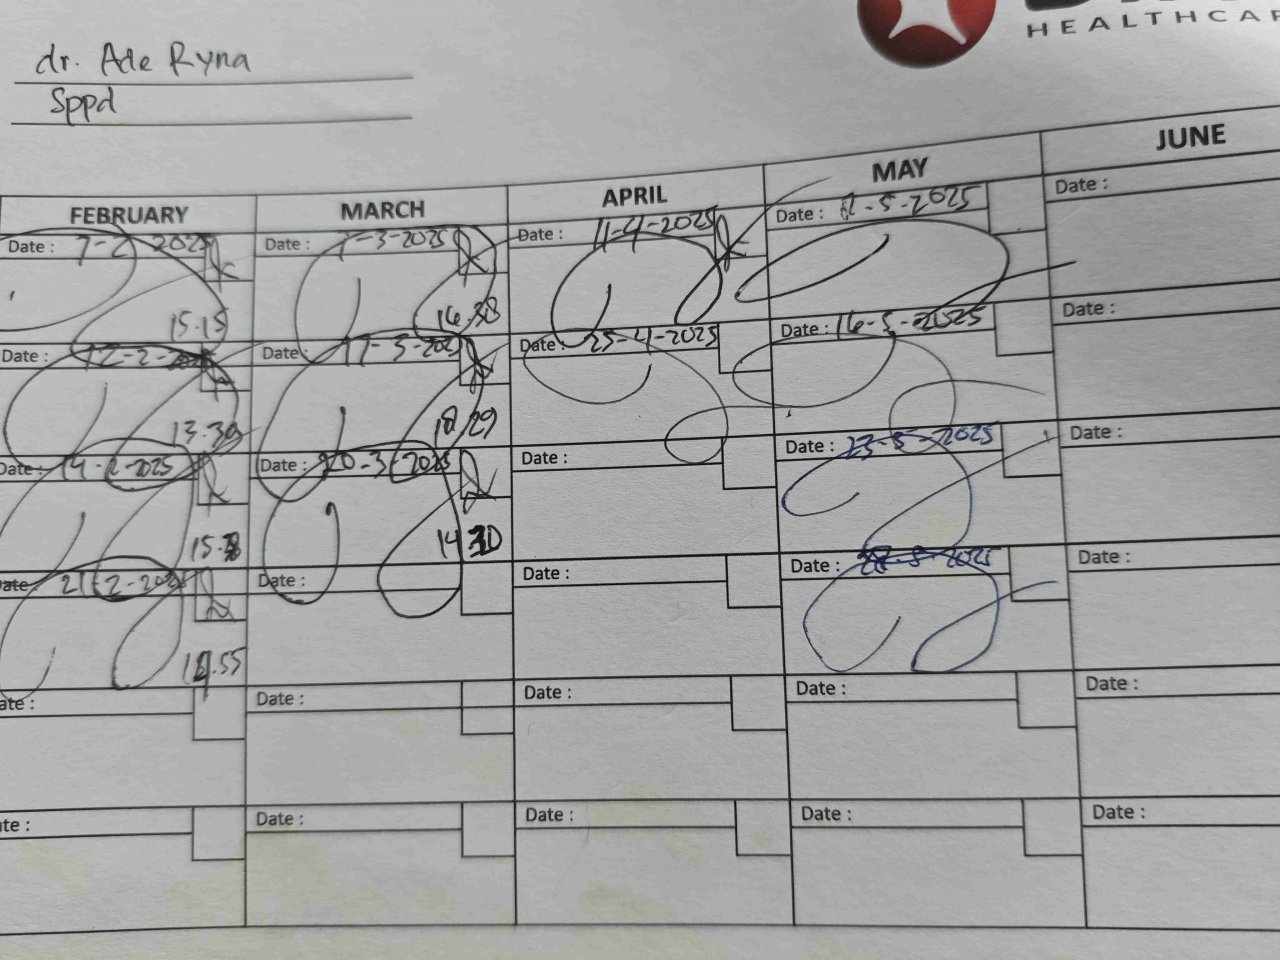 dr. Ade Ryna
Sppd
HEALTHCAR
FEBRUARY MARCH APRIL MAY JUNE
Date : 7-2 2025 Date : 7-3-2025 Date : 11-4-2025 Date : 2-5-2025 Date :
15.15 16.30
Date : 12-2- Date : 17-3-2025 Date : 25-4-2025 Date : 16-5-2025 Date :
13.30 18.29
Date : 14-2-2025 Date : 20-3-2025 Date : Date : 23-5-2025 Date :
15. 14
ate : 21-2-2025 Date : Date : Date : 28-5-2025 Date :
.55
ate : Date : Date : Date : Date :
te : Date : Date : Date : Date :